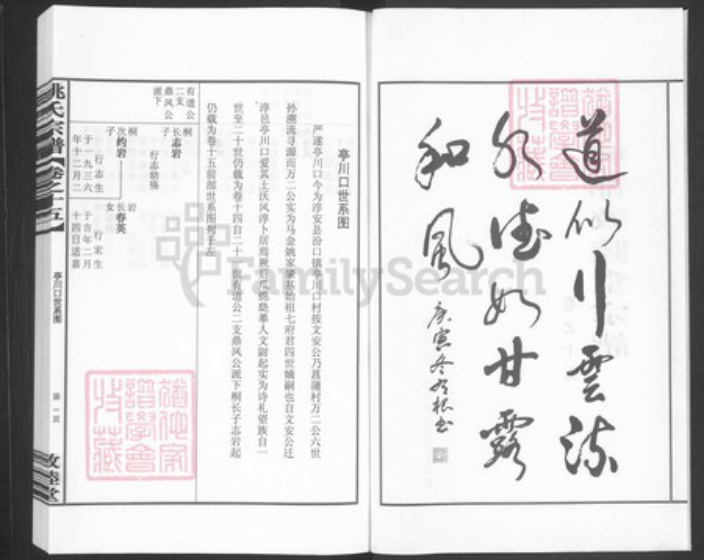 道似行雲流
水德如甘露
和風
庚寅冬
亭川口世系图
严遂亭川口今为淳安县汾口镇亭川口村按文安公乃菖蒲村万二公六世
孙溯流寻源而万二公实为马金姚家肇基始祖七府君四世嫡嗣也自文安公迁
淳邑亭川口爱其土沃风淳卜居焉厥后瓜瓞繁摹人文蔚起实为诗礼望族自一
世至二十世仍载为卷十四自二十一世有道公二支鼎风公派下桐长子志岩起
仍载为卷十五前部世系图列于左
有道公
二支
鼎风公
派下
桐长子
志岩
行志幼殇
桐次子
约岩
行志生
于一九三六
年十二月二
岩长女
春英
行宏生
于吉年二月
十四日适嘉
姚氏宗譜
卷之十五
亭川口世系图
第一页
敦睦堂
猶他家
譜學會
收藏
猶他家
譜學會
收藏
FamilySearch